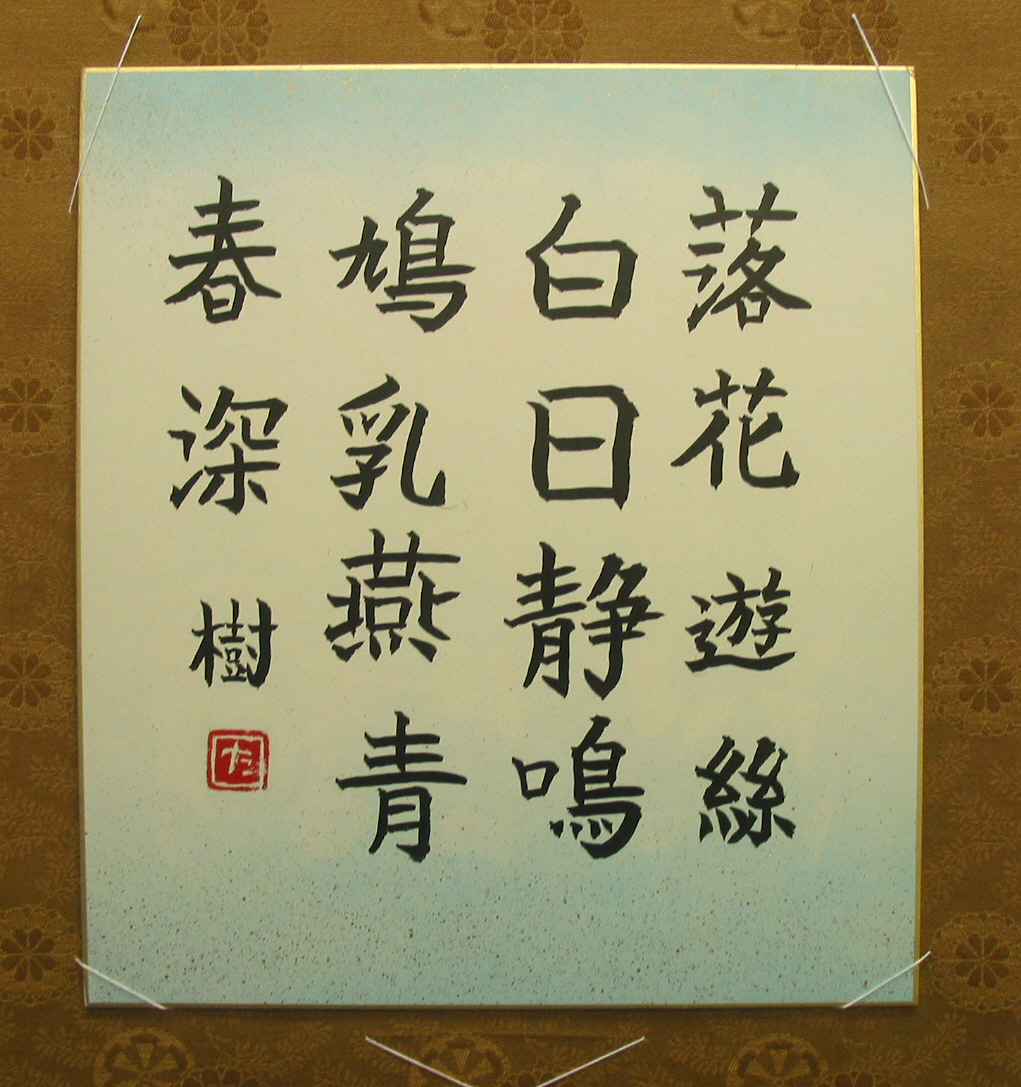 落花遊絲
白日静鳴
鳩乳燕青
春深 樹
た